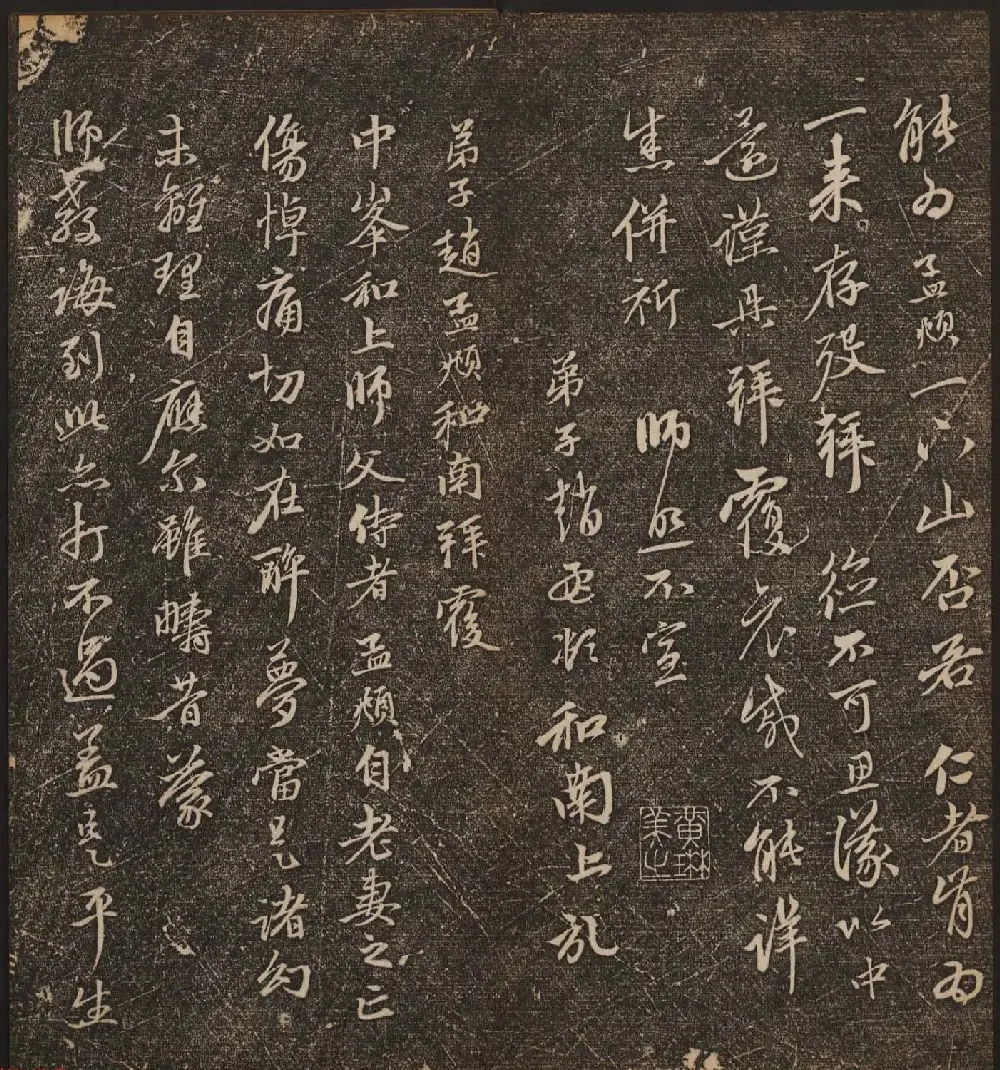 能为孟頫一下山否若仁者肯为
一来存殁拜德不可思議以中
還謹具拜覆哀感不能詳
悉併祈師照不宣
弟子趙孟頫和南上
黃琳美之
弟子趙孟頫和南拜覆
中峯和上師父侍者孟頫自老妻之亡
傷悼痛切如在醉夢當是諸幻
未離理自應尔雖疇昔蒙
師教誨到此亦打不過盖是平生